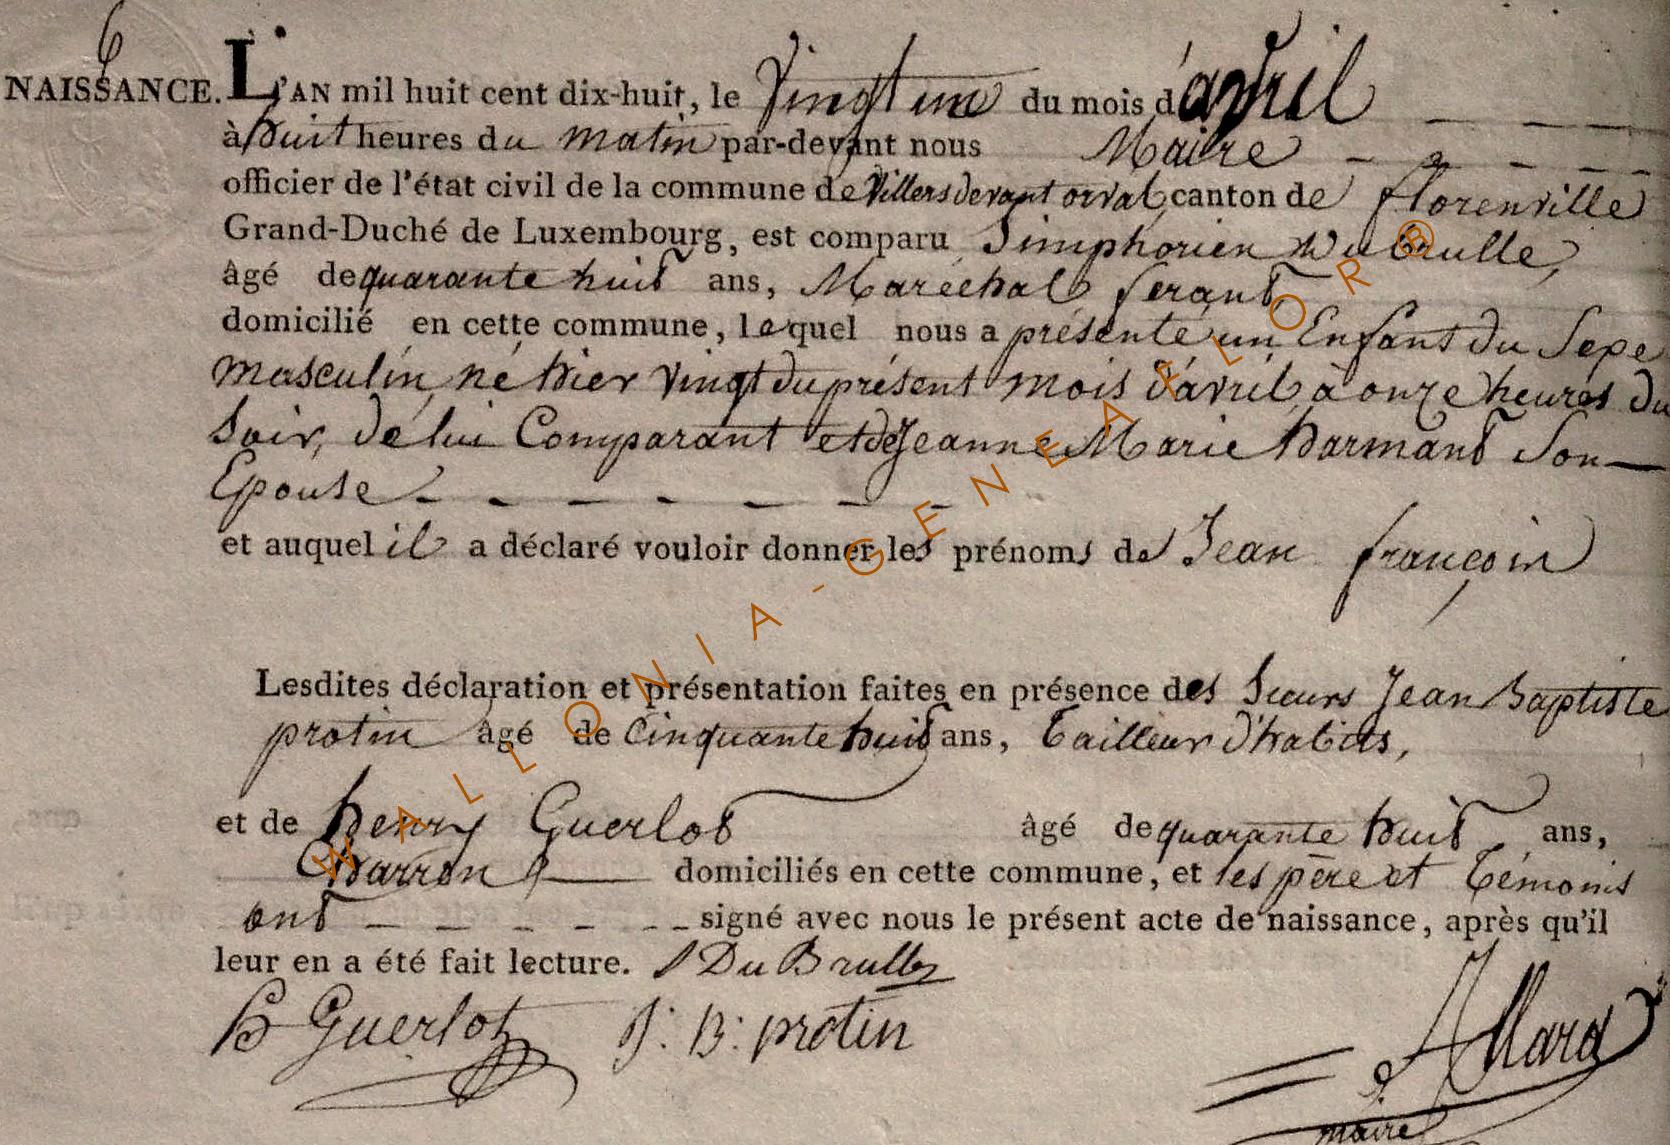 6
NAISSANCE. L'AN mil huit cent dix-huit, le vingt un du mois d'avril
à huit heures du matin par-devant nous Maire
officier de l'état civil de la commune de Villers devant orval, canton de florenville
Grand-Duché de Luxembourg, est comparu Simphorien Dubrulle,
âgé de quarante huit ans, Maréchal ferant
domicilié en cette commune, lequel nous a présenté un Enfant du Sexe
masculin, né hier vingt du présent mois d'avril, à onze heures du
Soir, de lui Comparant et de Jeanne Marie harmand Son
Epouse
et auquel il a déclaré vouloir donner les prénoms de Jean françois
Lesdites déclaration et présentation faites en présence des Sieurs Jean Baptiste
protin âgé de cinquante huit ans, tailleur d'habits,
et de henry Guerlot âgé de quarante huit ans,
Charron domiciliés en cette commune, et les père et témoins
ont signé avec nous le présent acte de naissance, après qu'il
leur en a été fait lecture. S DuBrulle
H Guerlot J: B: protin Allard
maire
WALLONIA-GENEAFLOR®